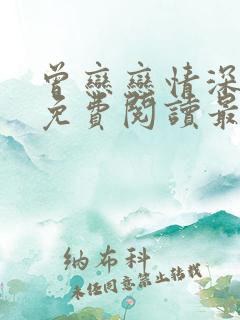 曾戀戀情深
免費閱讀最
納布科
未經同意禁止轉載